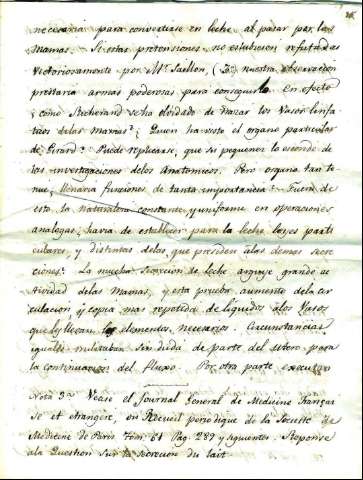 necesaria para convertirse en leche al pasar por las
Mamas. Si estas pretensiones no estubiesen refutadas
victoriosamente por Mr. Saillon, (3ª nuestra observacion
prestaria armas poderosas para conseguirlo. En efecto
¿como Richerand se ha olvidado de trazar los Vasos linfa
ticos de las Mamas? ¿Quien ha visto el organo particular
de Girard? Puede replicarse, que su pequeñez lo esconde de
las investigaciones de los Anatomicos. Pero organo tan te
nue, llenaria funciones de tanta importancia? Fuera de
esto la naturaleza constante, y uniforme en operaciones
analogas, havia de establecer para la leche leyes parti
culares, y distintas de las que presiden a las demas secre
ciones? La mucha secrecion de leche arguye grande ac
tividad de las Mamas, y esta prueba aumento de la cir
culacion, y copia mas repetida de liquidos a los Vasos
que llevan los elementos necesarios. Circunstancias
iguales militaban sin duda de parte del utero para
la continuacion del fluxo. Por otra parte
Nota 3ª Vease el Journal General de Medicine Françai
se et etrangére, ou Recueil periodique de la Societé de
Medicine de Paris Tom. 61 Pag. 289 y siguientes. Reponse
a la Question sur la secrecion du lait